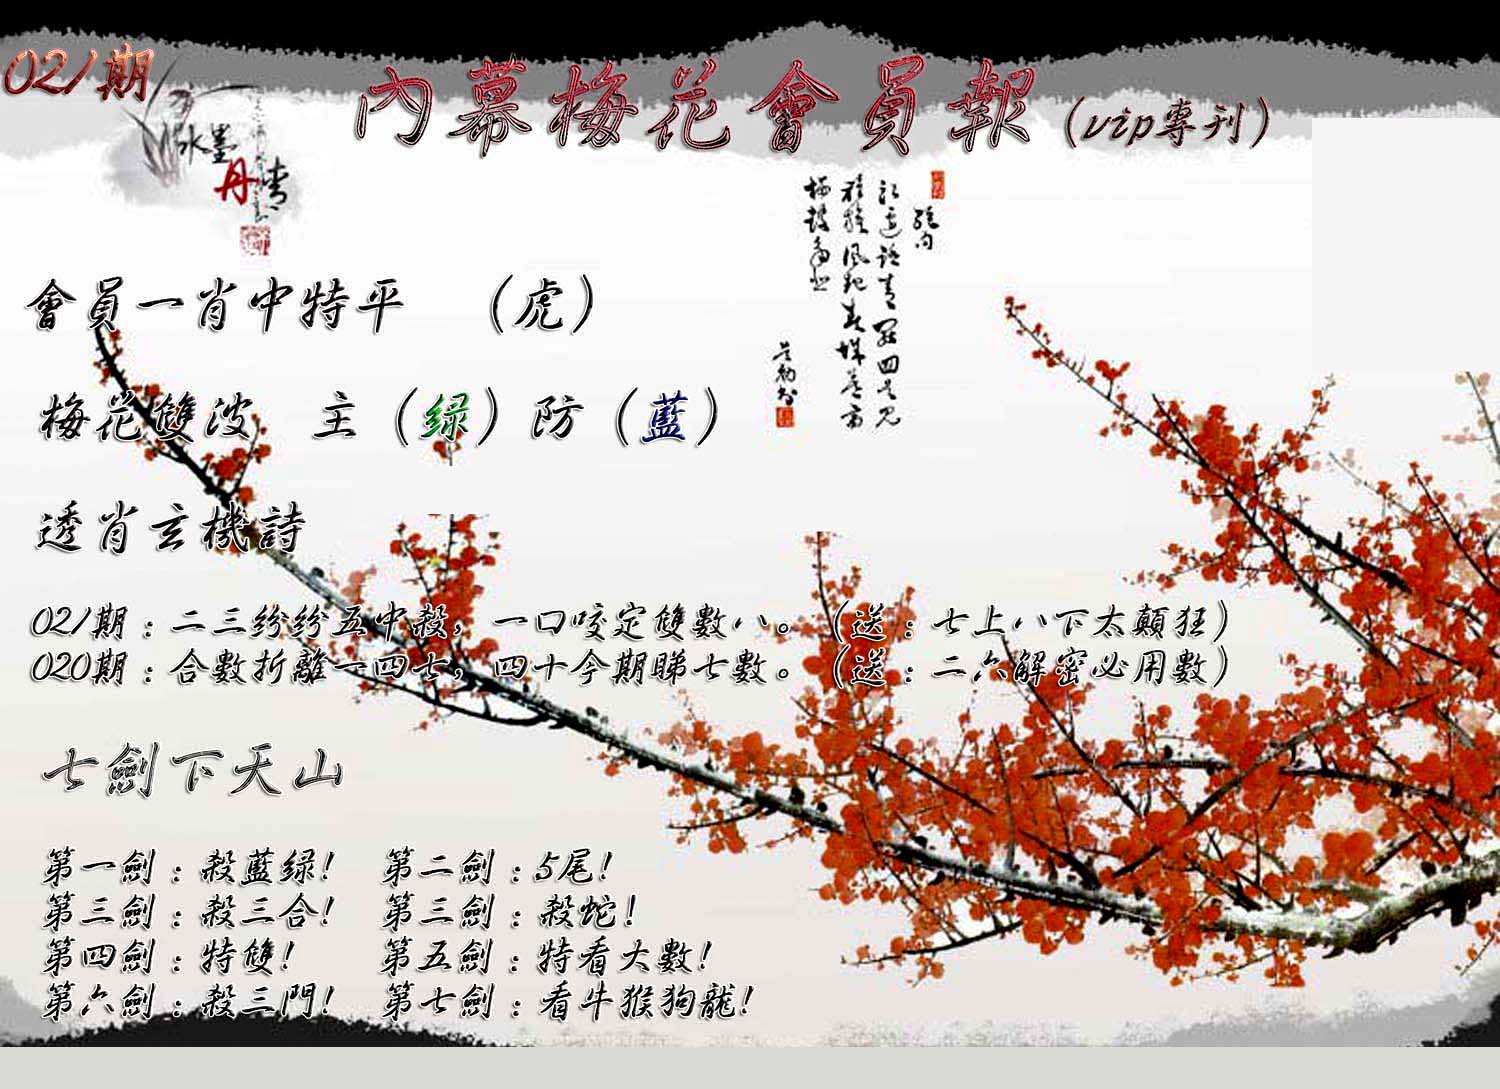 021期
水墨
丹青
內幕梅花會員報（vip專刊）
會員一肖中特平　（虎）
梅花雙波　主（绿）防（藍）
透肖玄機詩
021期：二三纷纷五中殺，一口咬定雙數八。（送：七上八下太顛狂）
020期：合數折離一四七，四十今期睇七數。（送：二六解密必用數）
七劍下天山
第一劍：殺藍绿！　第二劍：5尾！
第三劍：殺三合！　第三劍：殺蛇！
第四劍：特雙！　第五劍：特看大數！
第六劍：殺三門！　第七劍：看牛猴狗龍！